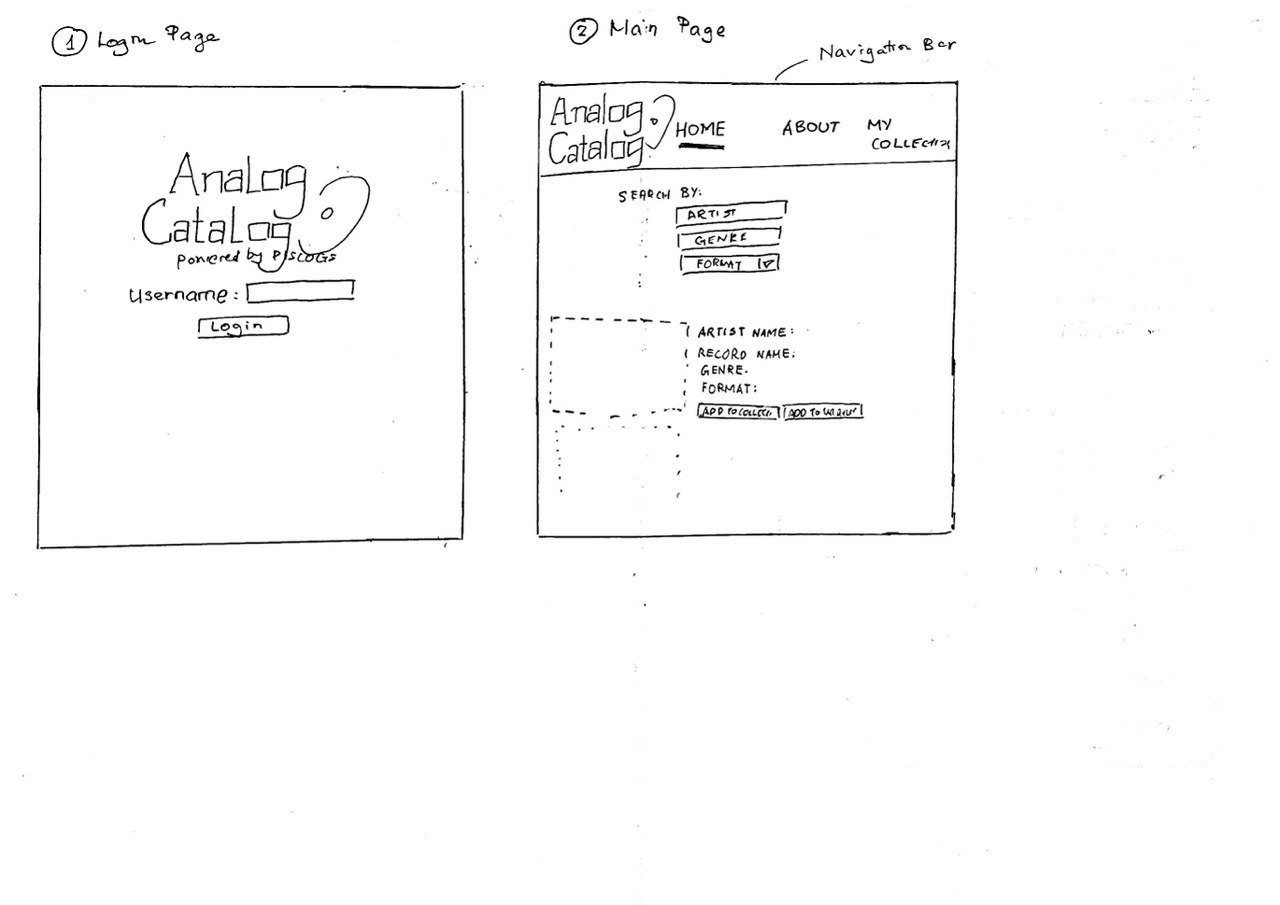 1 Login Page
Analog
Catalog
powered by DISCOGS
Username:
Login
2 Main Page
Navigation Bar
Analog
Catalog
HOME
ABOUT
MY
COLLECTION
SEARCH BY:
ARTIST
GENRE
FORMAT
ARTIST NAME:
RECORD NAME:
GENRE.
FORMAT:
ADD TO COLLECT.
ADD TO